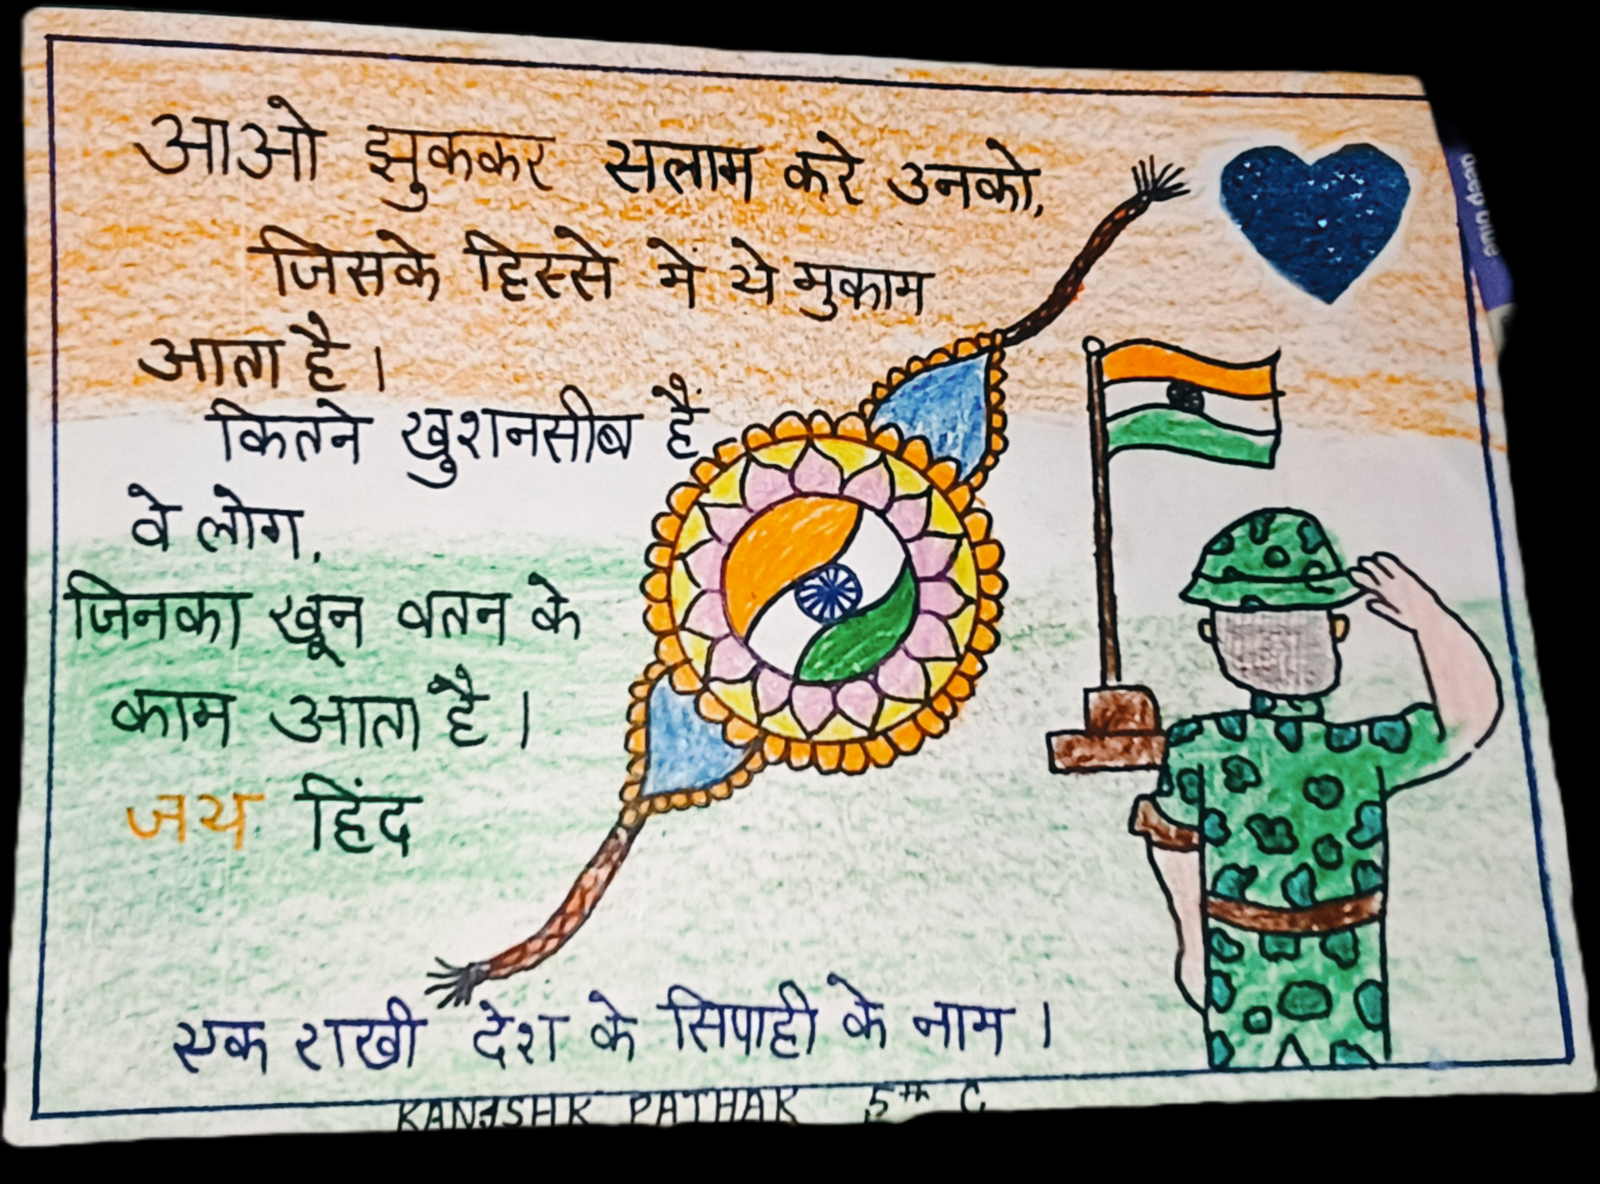 आओ झुककर सलाम करे उनको,
जिसके हिस्से में ये मुकाम
आता है।
कितने खुशनसीब हैं
वे लोग,
जिनका खून वतन के
काम आता है।
जय हिंद
एक राखी देश के सिपाही के नाम।
KANISHK PATHAK 5th C